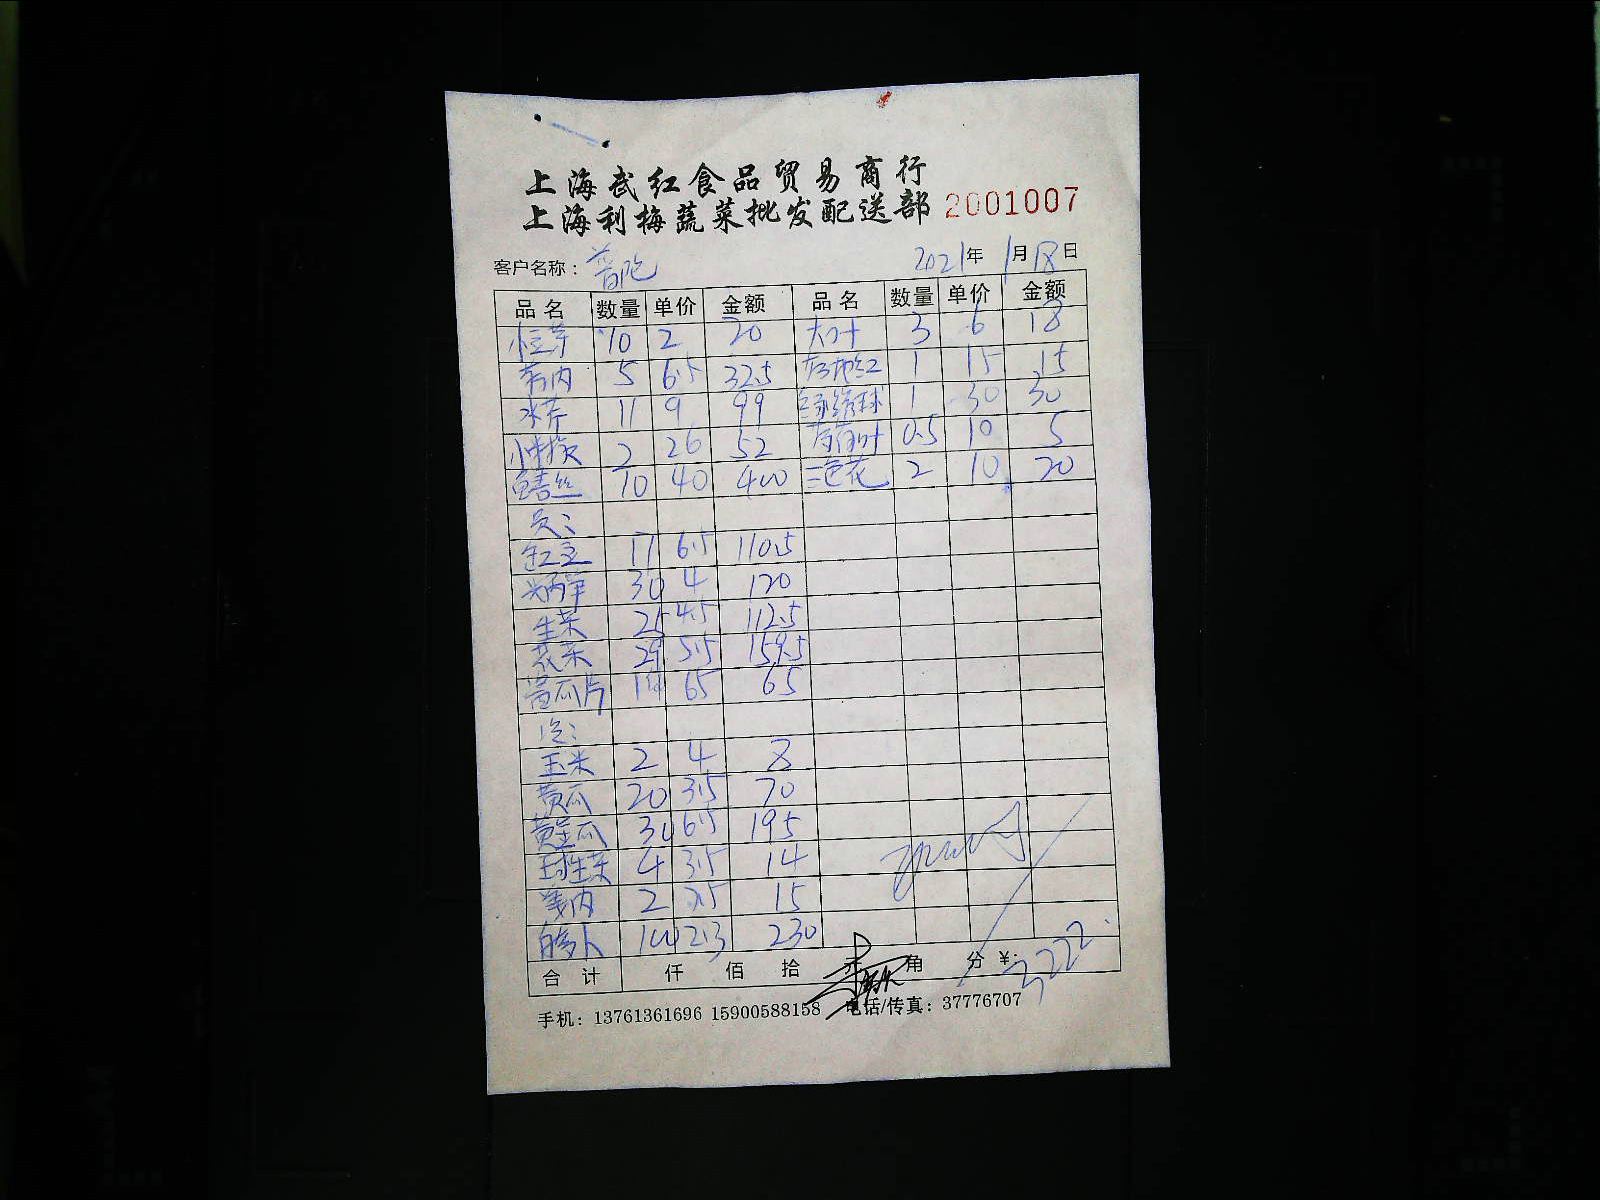 上海武红食品贸易商行
上海利梅蔬菜批发配送部 2001007
客户名称：普陀 2021年1月18日
品名 数量 单价 金额 品名 数量 单价 金额
10 2 20 大叶 3 6 18
5 6.5 32.5 1 15 15
水芹 11 9 99 绿绣球 1 30 30
2 26 52 0.5 10 5
鳝丝 10 40 400 三色花 2 10 20
17 6.5 110.5
30 4 120
生菜 25 4.5 112.5
花菜 29 5.5 159.5
酱瓜片 65 65
玉米 2 4 8
黄瓜 20 3.5 70
30 6.5 195
球生菜 4 3.5 14
2 7.5 15
100 2.3 230
合计 仟 佰 拾 元 角 分 ¥:
手机：13761361696 15900588158 电话/传真：37776707